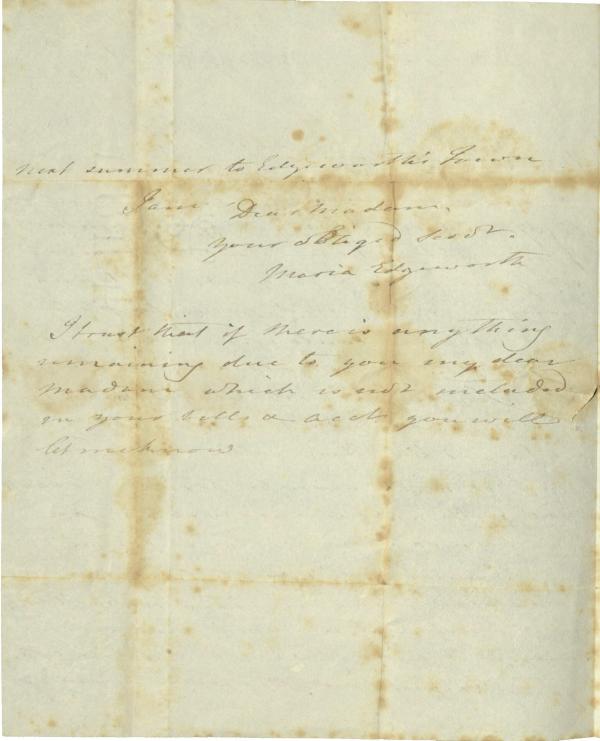 next summer to Edgeworth's Town
I am Dear Madam.
your obliged Servt.
Maria Edgeworth
I trust that if there is anything
remaining due to you my dear
Madam which is not included
in your bills & acct you will
let me know